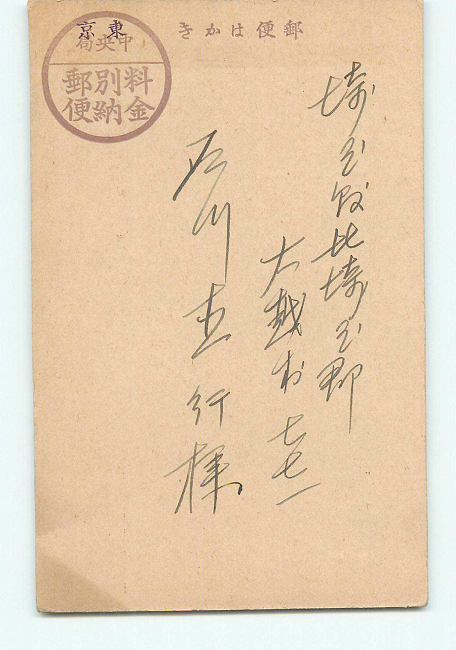 郵便はかき
東京
中央局
料金別納郵便
埼玉県北埼玉郡
大越村七七一
石川直行様